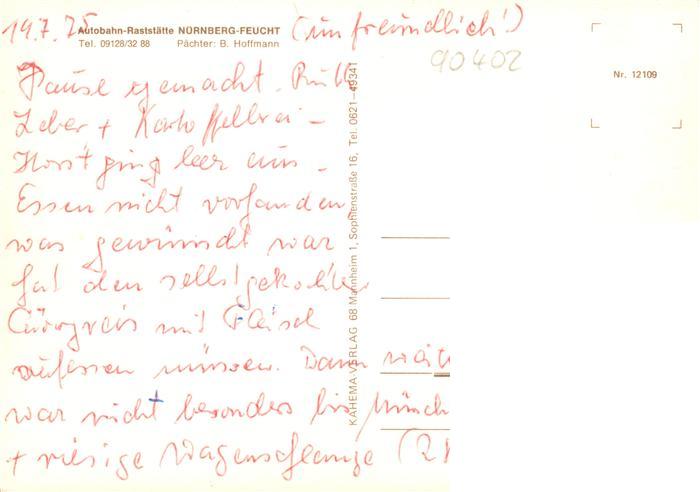 19.7.75 Autobahn-Raststätte NÜRNBERG-FEUCHT (unfreundlich!)
Tel. 09128/32 88 Pächter: B. Hoffmann
90402
Nr. 12109
Pause gemacht.
Leber + Kartoffelbrei -
Horst ging leer aus -
Essen nicht vorhanden
was gewünscht war
hat den selbstgekochten
Curryreis mit Fleisch
aufessen müssen. Dann
war nicht besonders bis Münch
+ riesige Wagenschlange
KAHEMA-VERLAG 68 Mannheim 1, Sophienstraße 16, Tel. 0621-49341